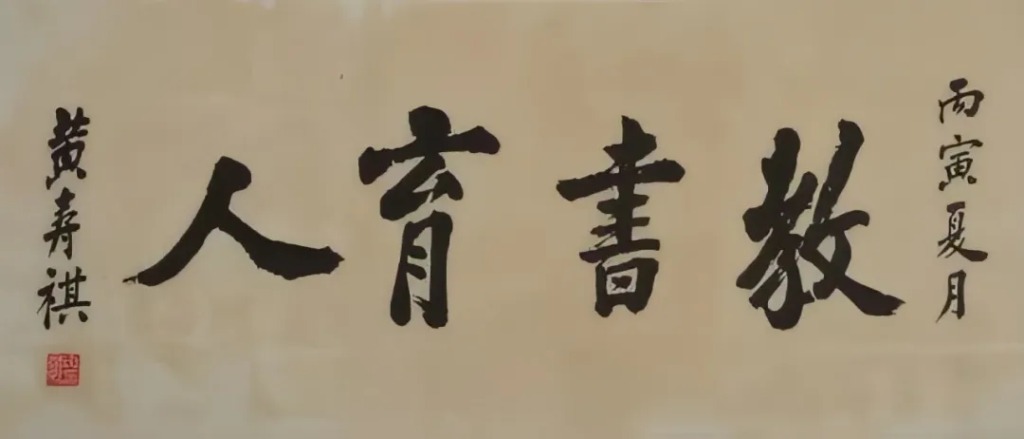 丙寅夏月
教書育人
黄寿祺